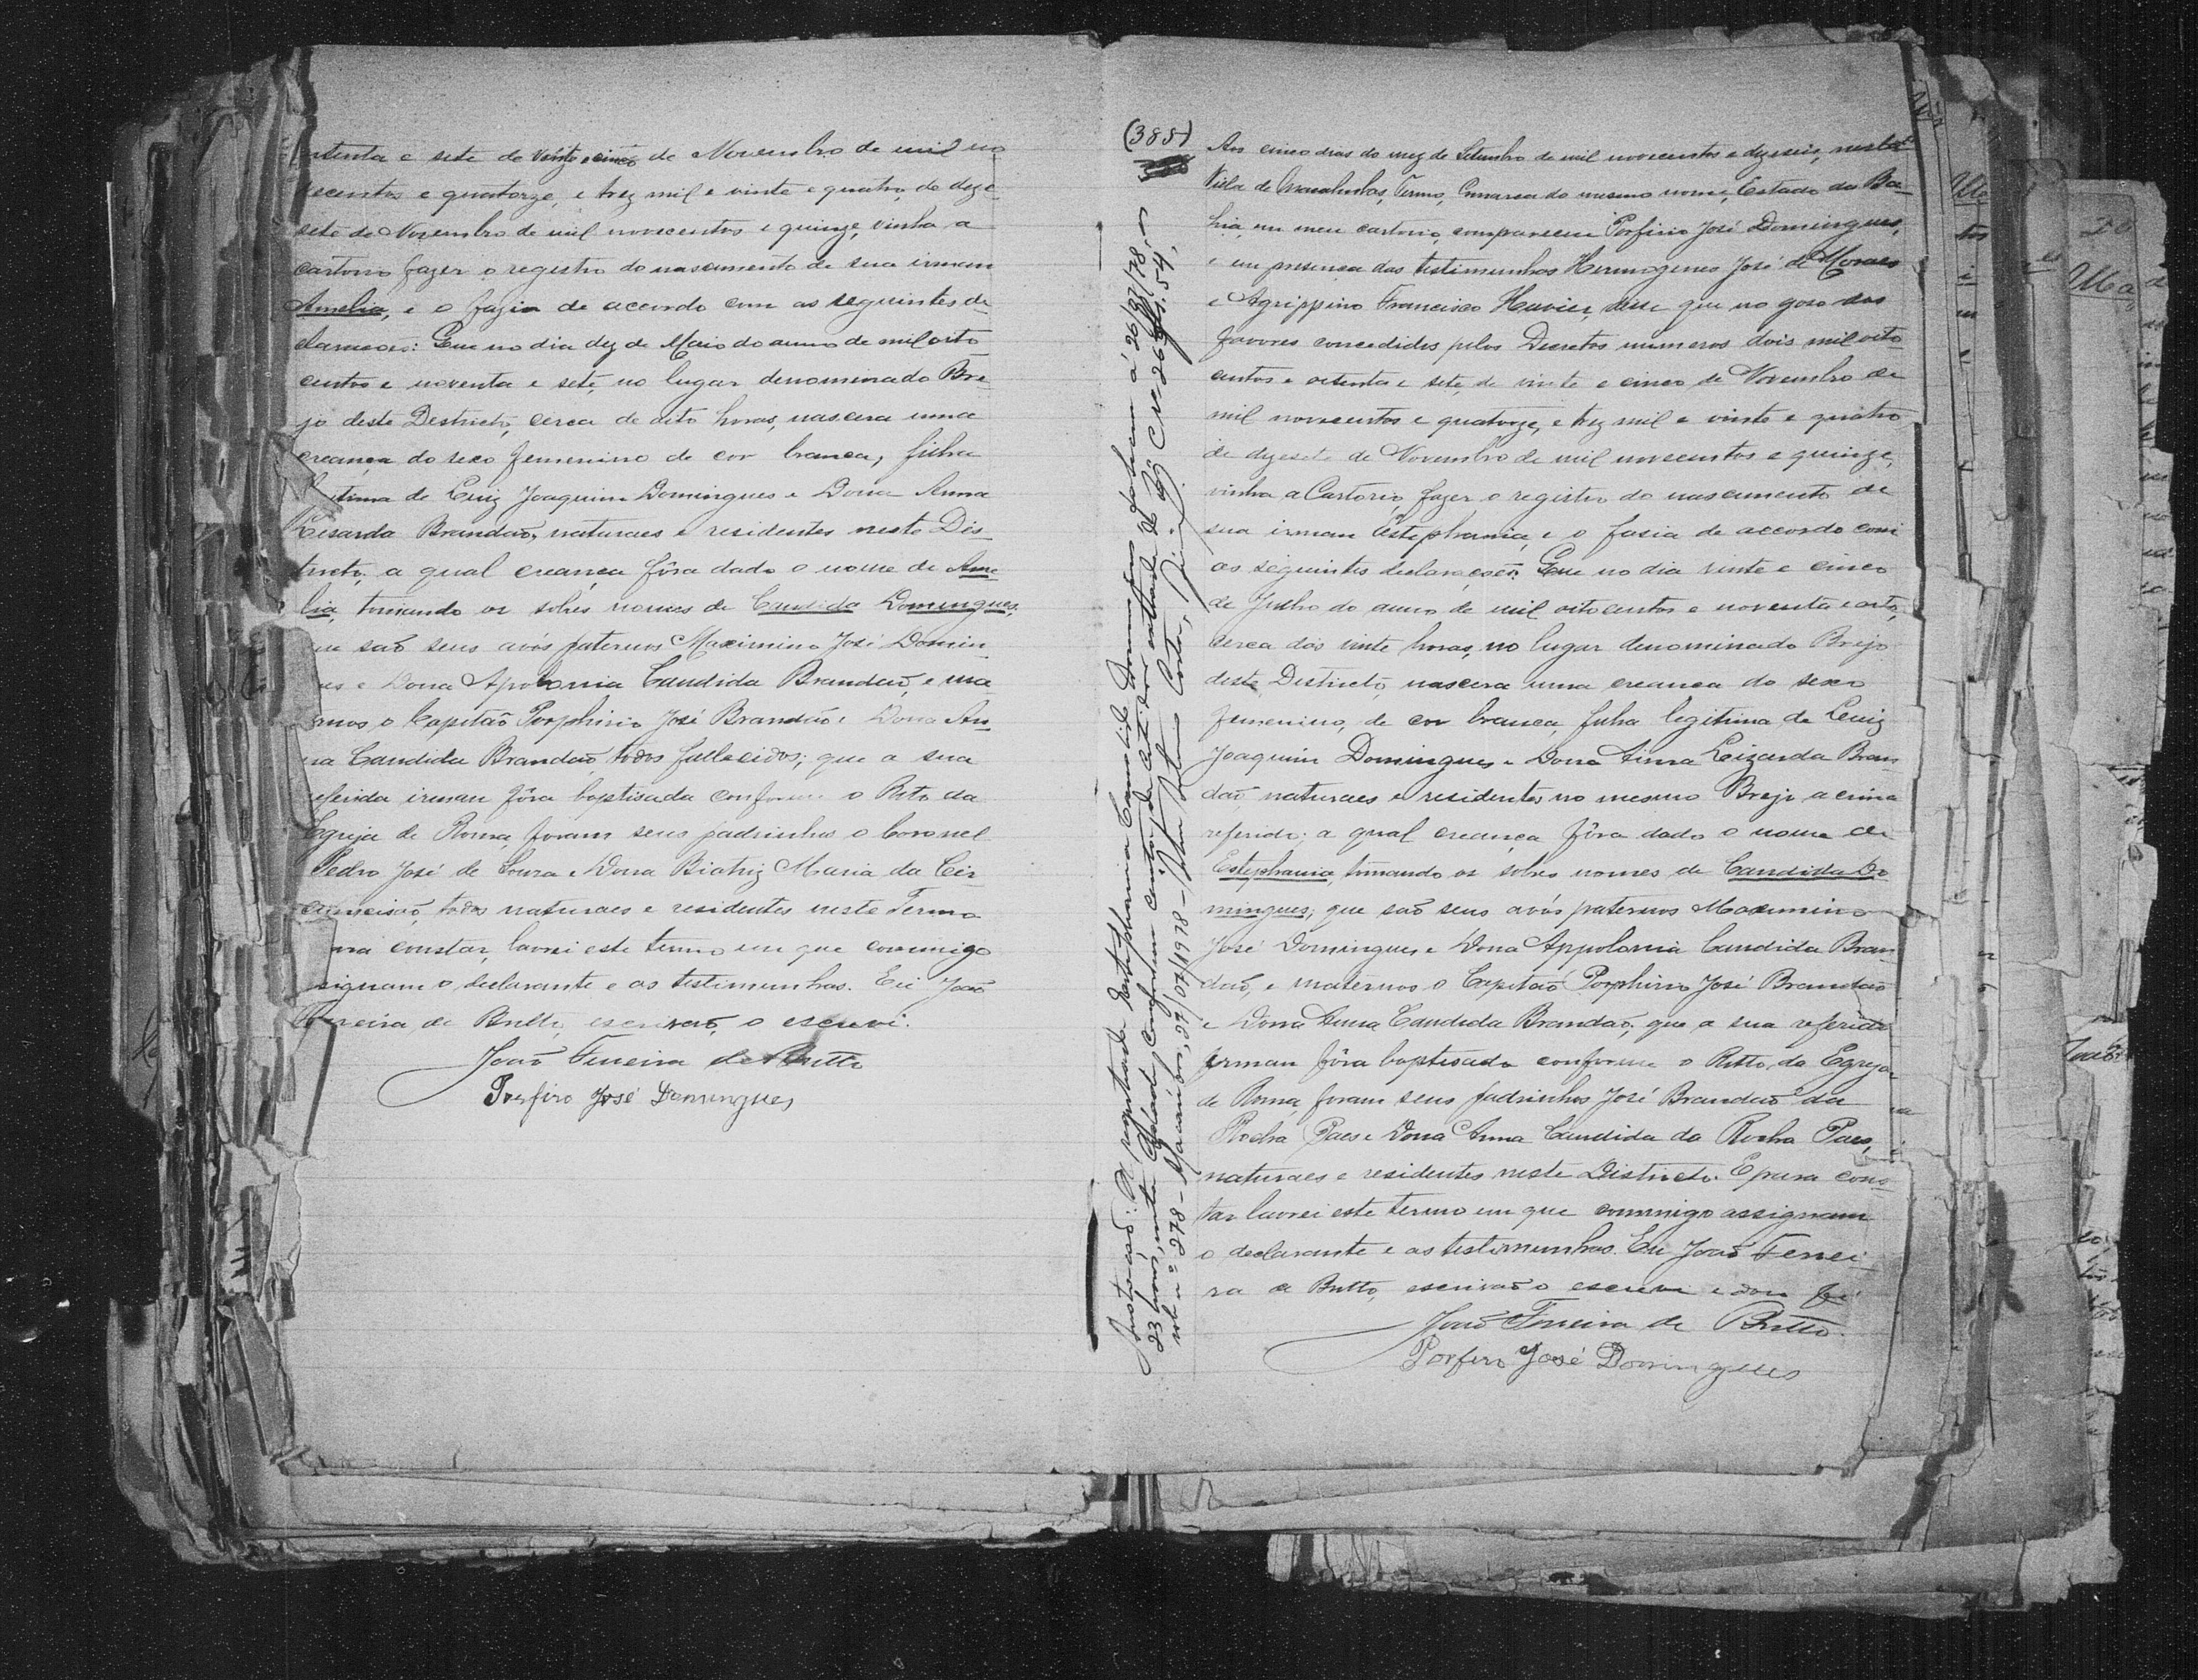 e sete de vinte e cinco de Novembro de mil no
vecentos e quatorze, e trez mil e vinte e quatro, de deze-
sete de Novembro de mil novecentos e quinze, vinha a
cartorio fazer o registro do nascimento de sua irman
Amelia, e o fazia de accordo com as seguintes de-
claracoes: Que no dia dez de Maio do anno de mil oito
centos e noventa e sete, no lugar denominado Bre-
jo deste Destricto, cerca de oito horas, nascera uma
creança do sexo femenino de cor branca, filha
de Luiz Joaquim Domingues e Dona Anna
Lesarda Brandaõ, naturaes e residentes neste Dis-
tricto, a qual creança fôra dado o nome de Ame-
lia, tomando os sobres nomes de Candida Domingues,
que saõ seus avós paternos Maximino José Domin
e Dona Apolonia Candida Brandaõ, e ma
ternos o Capitaõ Porphirio José Brandaõ e Dona An-
na Candida Brandaõ, todos fallecidos; que a sua
referida irman fôra baptisada conforme o Rito da
Egreja de Roma, foram seus padrinhos o Coronel
Pedro José de Souza e Dona Biatriz Maria da Cir-
cumcisaõ, todos naturaes e residentes neste Termo
para constar, lavrei este termo em que commigo
assignam o declarante e as testimunhas. Eu Joaõ
Ferreira de Britto, escrivaõ, o escrevi.
Joaõ Ferreira de Britto
Porfiro José Domingues
(385)
Aos cinco dias do mez de Setembro de mil novecentos e dezeseis, nesta
Villa de Maracás, Termo, Comarca do mesmo nome, Estado da Ba-
hia, em meu cartorio, compareceu Porfirio José Domingues,
e em presença das testimunhas Hermogenes José de Moraes
e Agrippino Francisco Xavier disse que no goso dos
favores concedidos pelos Decretos numeros dois mil oito
centos e oitenta e sete, de vinte e cinco de Novembro de
mil novecentos e quatorze, e trez mil e vinte e quatro
de dezesete de Novembro de mil novecentos e quinze,
vinha a Cartorio, fazer o registro do nascimento de
sua irman Estephania, e o fasia de accordo com
as seguintes declarações: Que no dia vinte e cinco
de Julho do anno de mil oitocentos e noventa e oito,
cerca das vinte horas, no lugar denominado Brejo
deste Destricto, nascera uma creança do sexo
femenino, de cor branca, filha legitima de Luiz
Joaquim Domingues e Dona Anna Lizarda Bran
daõ naturaes e residentes no mesmo Brejo acima
referido; a qual creança fôra dado o nome de
Estephania, tomando os sobres nomes de Candida Do
mingues; que saõ seus avós paternos Maximino
José Domingues e Dona Appolonia Candida Bran
daõ, e maternos o Capitaõ Porphirio José Brandaõ
e Dona Anna Candida Brandaõ; que a sua referida
irman fôra baptisada conforme o Ritto da Egreja
de Roma, foram seus padrinhos José Brandaõ da
Rocha Paes e Dona Anna Candida da Rocha Paes,
naturaes e residentes neste Districto. E para cons-
tar lavrei este termo em que commigo assignam
o declarante e as testimunhas. Eu Joaõ Ferrei-
ra de Britto, escrivaõ o escrevi e dou fé
Joaõ Ferreira de Britto.
Porfiro José Domingues
A registrada Estephania Candida Domingues à 26/07/78, as
23 horas, nesta Cidade, conforme
sob nº 278 - 27/07/1978 - fls. 54,